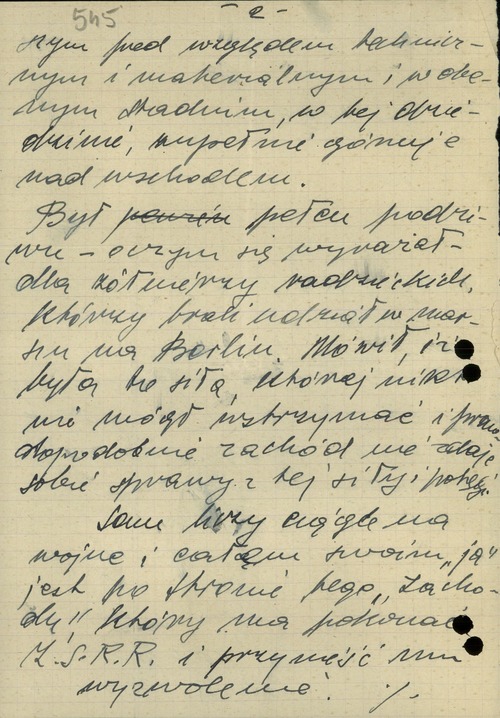 545 - 2 -
szym pod względem technicz-
nym i materialnym i w obe-
nym stadium, w tej dzie-
dzinie, zupełnie góruje
nad wschodem.
Był pewien pełen podzi-
wu - o czym się wyrażał -
dla żółnierzy radzieckich,
którzy brali udział w mar-
szu na Berlin. Mówił, iż
była to siła, której nikt
nie mógł wstrzymać i praw-
dopodobnie zachód nie zdaje
sobie sprawy z tej siły i potęgi.
Sam liczy ciągle na
wojnę i całym swoim "ja"
jest po stronie tego "Zacho-
du", który ma pokonać
Z.S.R.R. i przynieść mu
wyzwolenie. ./.